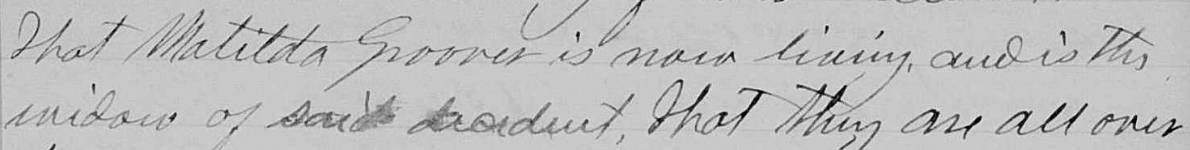 that Matilda Groover is now living, and is the
widow of said decedent, that they are all over